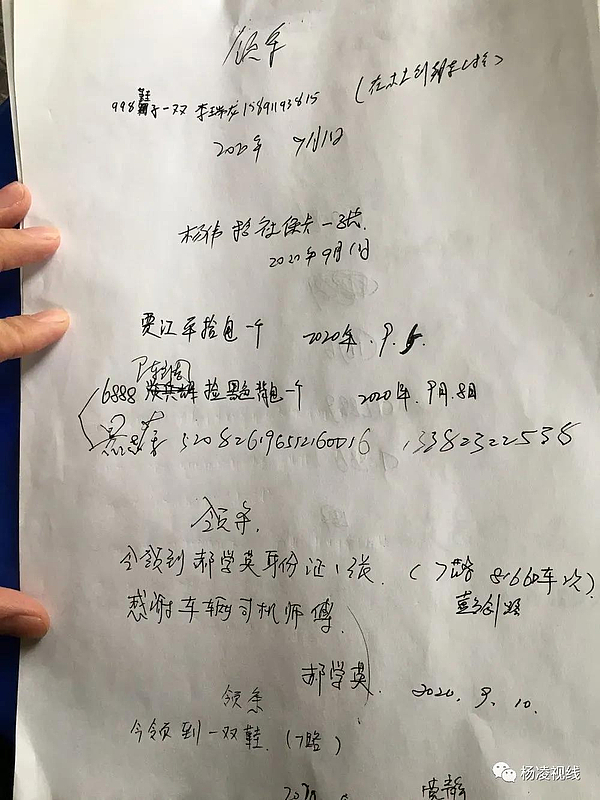 领条
998 鞋子一双 李瑞龙 15891193815
2020年 9月1日
杨伟 拾社保卡一张.
2020年9月1日
贾江平拾包一个 2020年.9.5.
陈刚
6888 捡黑色背包一个 2020年.9月.8日
320826196512160016 13382322538
领条.
今领到郝学英身份证1张. (7路 8166D车次)
感谢车辆司机师傅.
郝学英. 2020. 9. 10.
领条
今领到一双鞋. (7路)
2020
杨凌视线